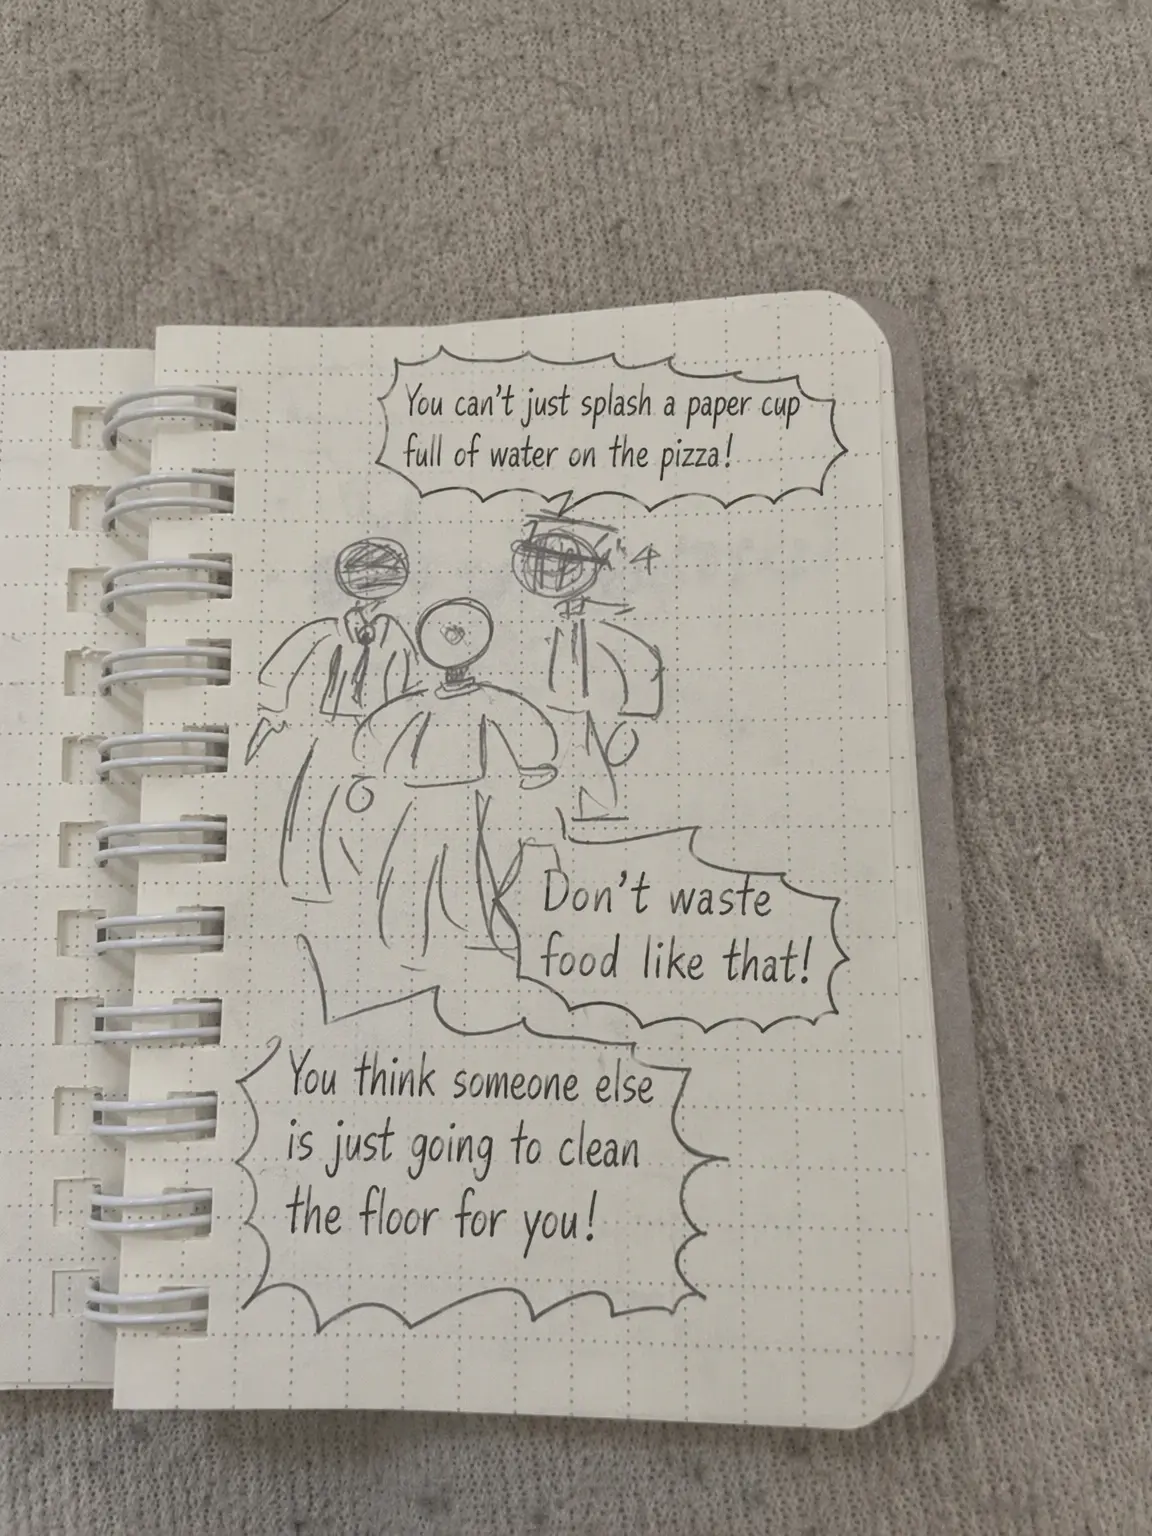 You can't just splash a paper cup
full of water on the pizza!
Don't waste
food like that!
You think someone else
is just going to clean
the floor for you!